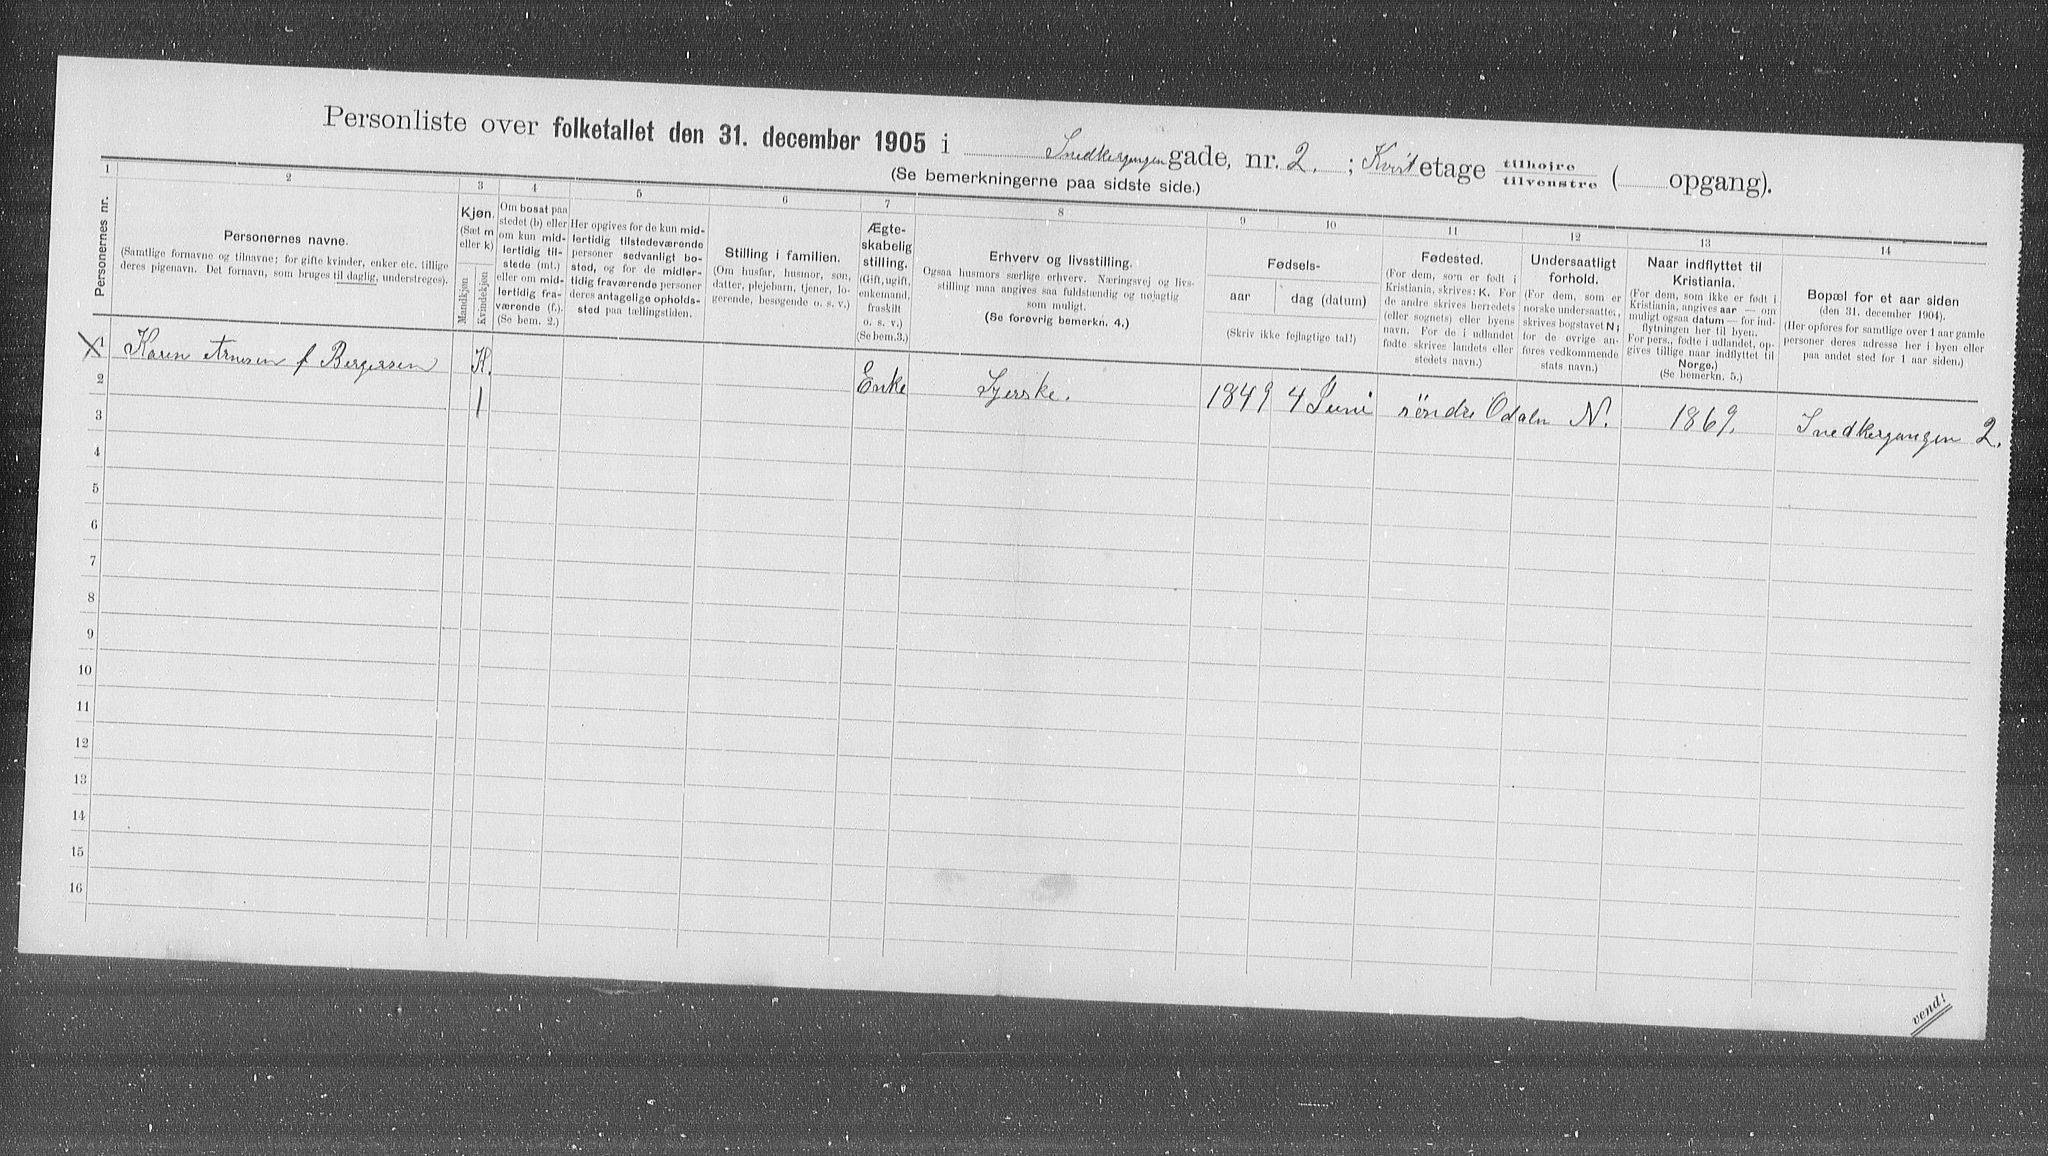 Personliste over folketallet den 31. december 1905 i Snedkergangen gade, nr. 2. ; Kvist etage tilhøire / tilvenstre ( opgang).
(Se bemerkningerne paa sidste side.)
1 2 3 4 5 6 7 8 9 10 11 12 13 14
Personernes nr.
Personernes navne.
(Samtlige fornavne og tilnavne; for gifte kvinder, enker etc. tillige
deres pigenavn. Det fornavn, som bruges til daglig, understreges).
Kjøn.
(Sæt m
eller k)
Mandkjøn
Kvindekjøn
Om bosat paa
stedet (b) eller
om kun mid-
lertidig til-
stede (mt.)
eller om mid-
lertidig fra-
værende (f.).
(Se bem. 2.)
Her opgives for de kun mid-
lertidig tilstedeværende
personer sedvanligt bo-
sted, og for de midler-
tidig fraværende personer
deres antagelige opholds-
sted paa tællingstiden.
Stilling i familien.
(Om husfar, husmor, søn,
datter, plejebarn, tjener, lo-
gerende, besøgende o. s. v.)
Ægte-
skabelig
stilling.
(Gift, ugift,
enkemand,
fraskilt
o. s. v.)
(Se bem.3.)
Erhverv og livsstilling.
Ogsaa husmors særlige erhverv. Næringsvej og livs-
stilling maa angives saa fuldstændig og nøjagtig
som muligt.
(Se forøvrig bemerkn. 4.)
Fødsels-
aar
dag (datum)
(Skriv ikke fejlagtige tal!)
Fødested.
(For dem, som er født i
Kristiania, skrives: K. For
de andre skrives herredets
(eller sognets) eller byens
navn. For de i udlandet
fødte skrives landets eller
stedets navn.)
Undersaatligt
forhold.
(For dem, som er
norske undersaatter,
skrives bogstavet N;
for de øvrige an-
føres vedkommende
stats navn.)
Naar indflyttet til
Kristiania.
(For dem, som ikke er født i
Kristiania, angives aar — om
muligt ogsaa datum — for ind-
flytningen her til byen.
For pers., fødte i udlandet, op-
gives tillige naar indflyttet til
Norge.)
(Se bemerkn. 5.)
Bopæl for et aar siden
(den 31. december 1904).
(Her opføres for samtlige over 1 aar gamle
personer deres adresse her i byen eller
paa andet sted for 1 aar siden.)
X 1 Karen Arnesen f Bergersen K. Enke Syerske. 1849 4 Juni søndre Odalen N. 1869. Snedkergangen 2.
2 1
3
4
5
6
7
8
9
10
11
12
13
14
15
16
vend!